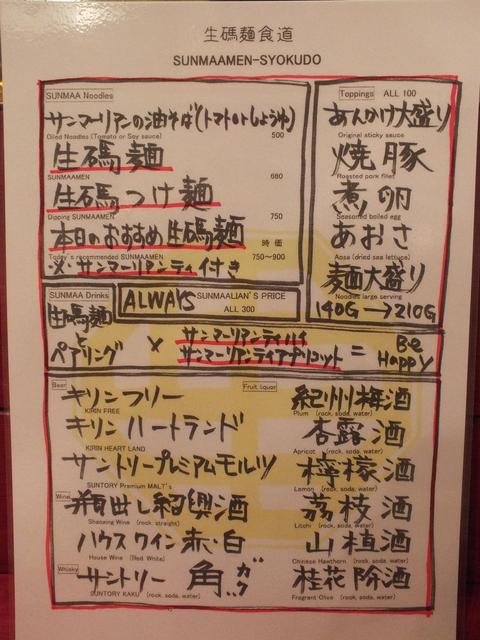 生碼麺食道
SUNMAAMEN-SYOKUDO
SUNMAA Noodles
サンマーリアンの油そば(トマトorしょうゆ)
Oiled Noodles (Tomato or Soy sauce) 500
生碼麺
SUNMAAMEN 680
生碼つけ麺
Dipping SUNMAAMEN 750
本日のおすすめ生碼麺 時価
Today's recommended SUNMAAMEN 750~900
※サンマーリアンティ付き
Toppings ALL 100
あんかけ大盛り
Original sticky sauce
焼豚
Roasted pork fillet
煮卵
Seasoned boiled egg
あおさ
Aosa (dried sea lettuce)
麺大盛り
Noodles large serving
140G→210G
SUNMAA Drinks
ALWAYS SUNMAALIAN'S PRICE
ALL 300
生碼麺
と
ペアリング × サンマーリアンティハイ
サンマーリアンティアプリコット = Be Happy
Beer
キリンフリー
KIRIN FREE
キリンハートランド
KIRIN HEART LAND
サントリープレミアムモルツ
SUNTORY Premium MALT's
Wine
瓶出し紹興酒
Shaoxing Wine (rock, straight)
ハウスワイン赤・白
House Wine (Red White)
Whisky
サントリー角ガク
SUNTORY KAKU (rock, soda, water)
Fruit liquor
紀州梅酒
Plum (rock, soda, water)
杏露酒
Apricot (rock, soda, water)
檸檬酒
Lemon (rock, soda, water)
茘枝酒
Litchi (rock, soda, water)
山樝酒
Chinese Hawthorn (rock, soda, water)
桂花陳酒
Fragrant Olive (rock, soda, water)